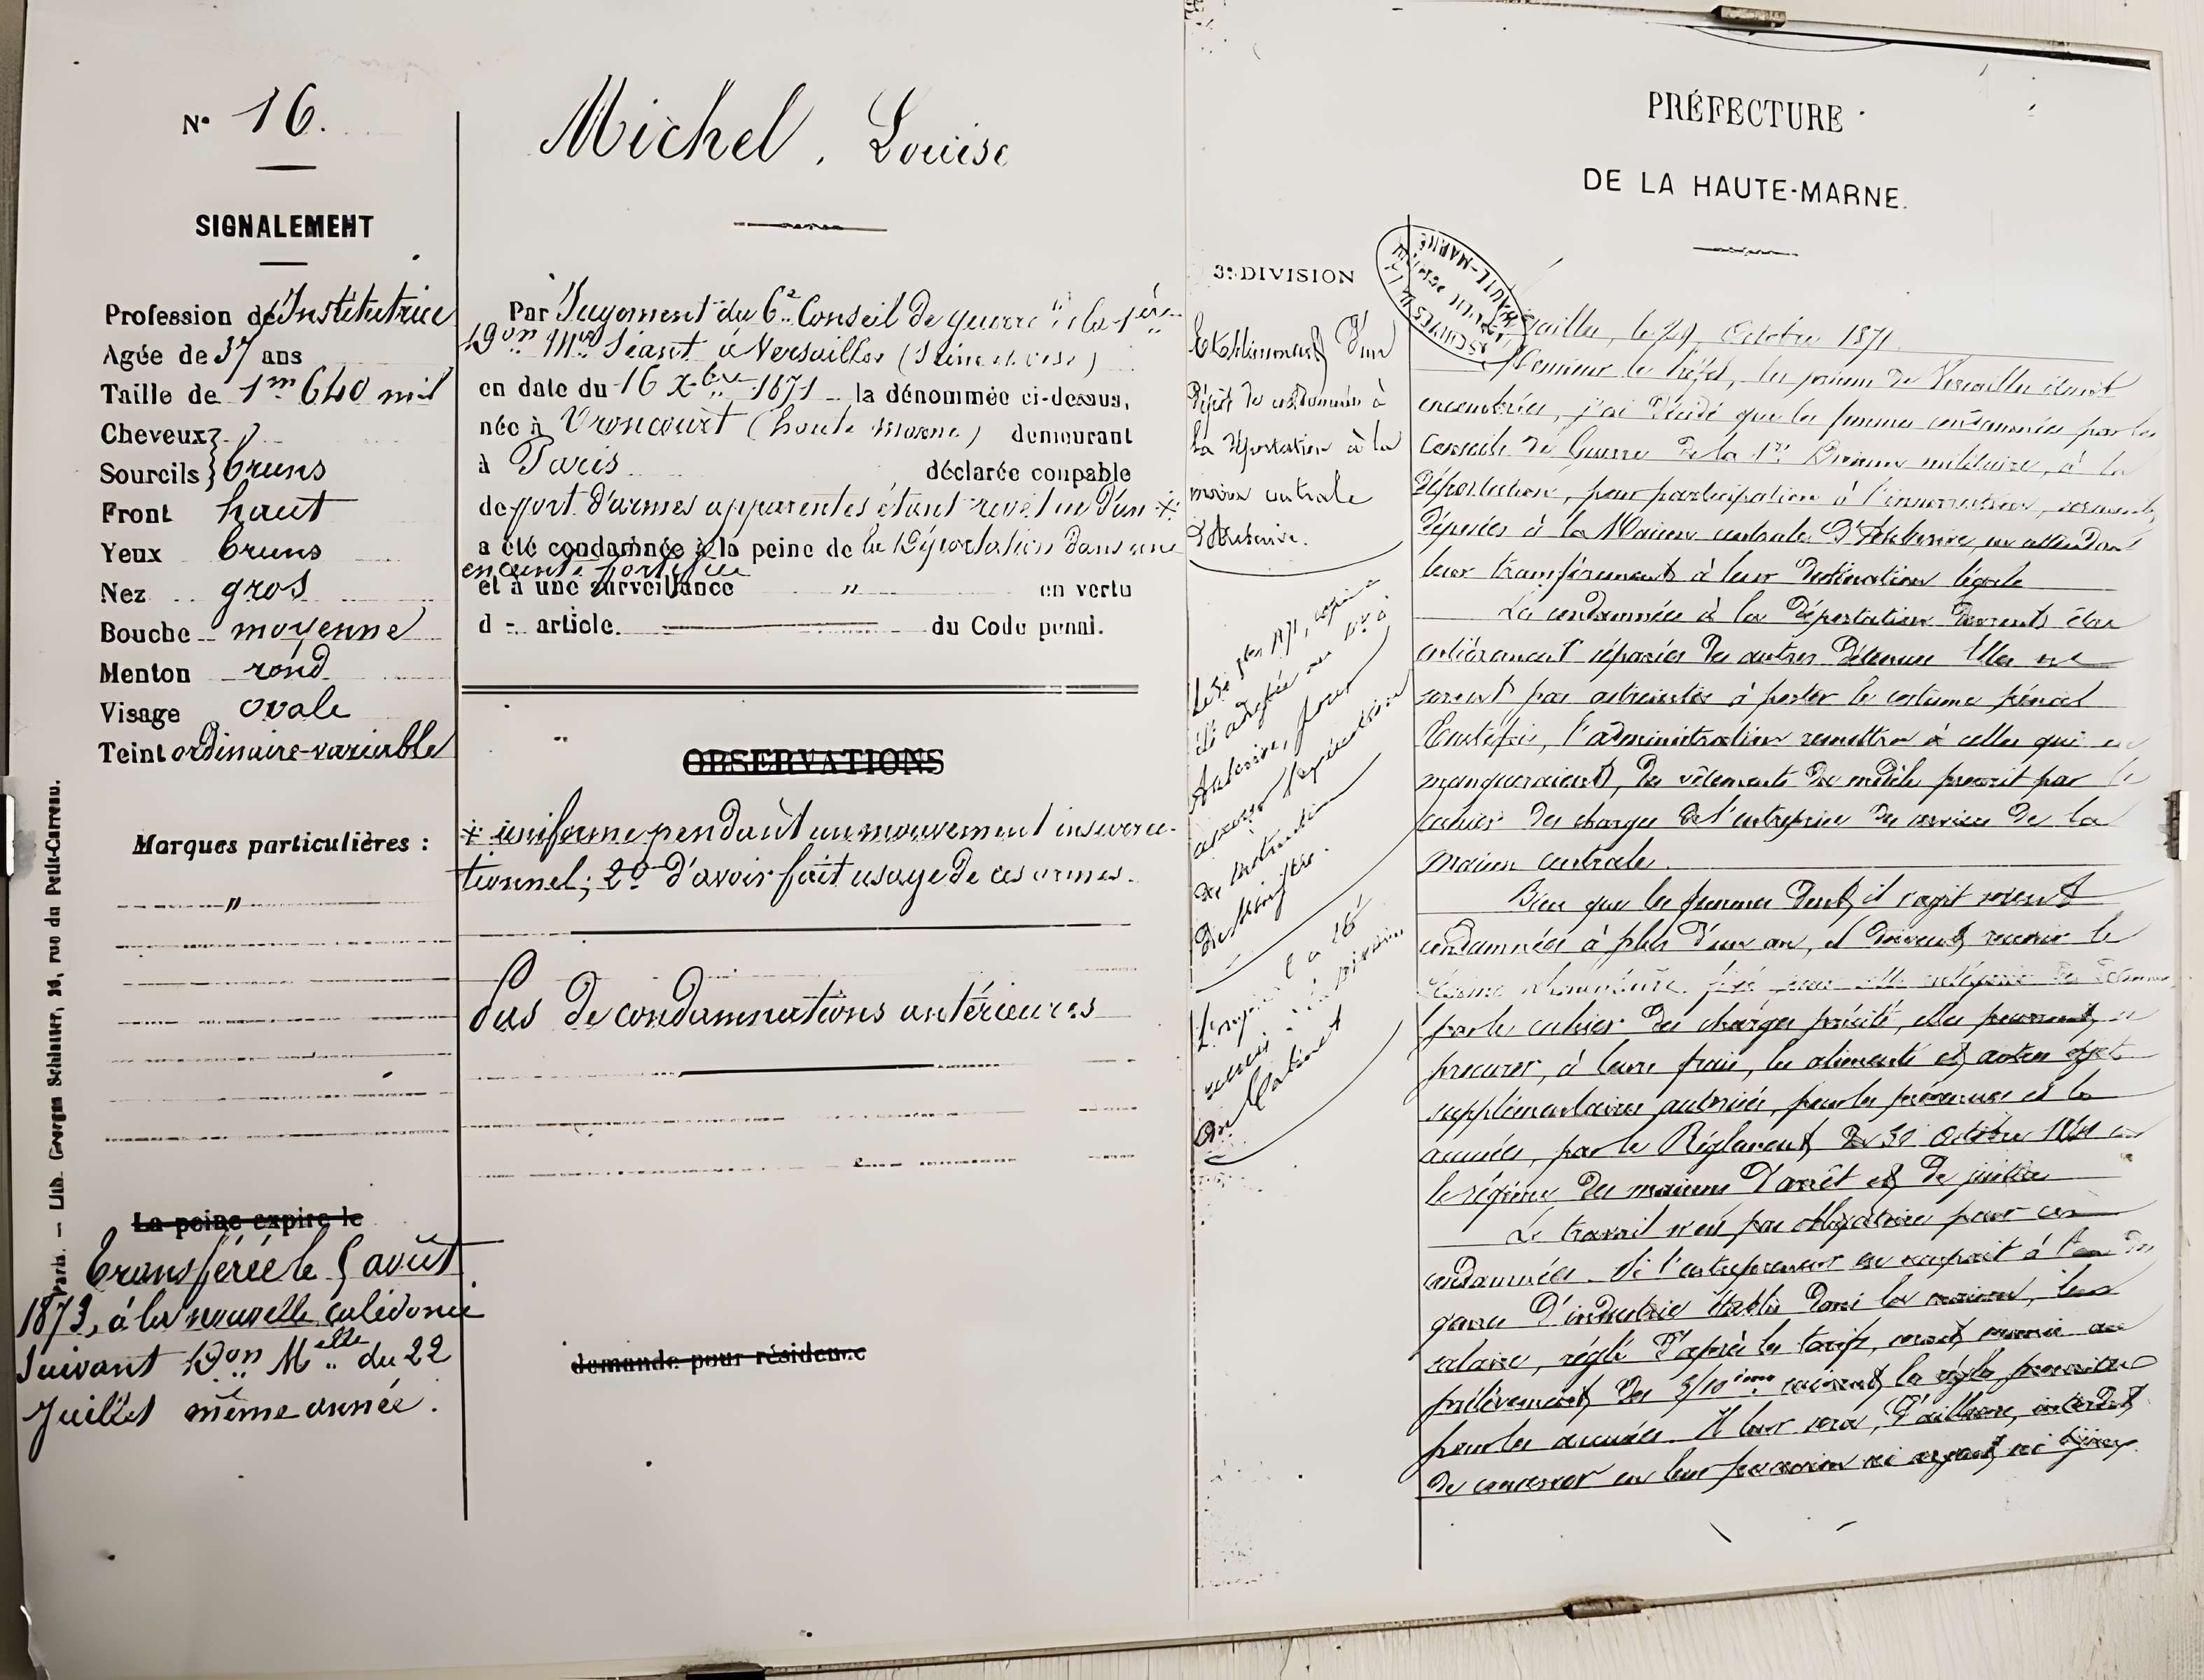 N° 16.
SIGNALEMENT
Profession de Institutrice
Agée de 37 ans
Taille de 1m 640 mil
Cheveux
Sourcils } bruns
Front haut
Yeux bruns
Nez gros
Bouche moyenne
Menton rond
Visage ovale
Teint ordinaire-variable
Marques particulières :
"
La peine expire le
Transférée le 5 août
1873, à la nouvelle calédonie
suivant Don Melle du 22
Juillet même année.
Paris. — Lith. Georges Schlatter, rue du Petit-Carreau.
Michel, Louise
Par Jugement du 6e Conseil de guerre de la 1ère
Don Mre Séant à Versailles (Seine et Oise)
en date du 16 Xbre 1871 la dénommée ci-dessus,
née à Vroncourt (haute marne) demeurant
à Paris déclarée coupable
de port d'armes apparentes étant revêtue d'un *
a été condamnée à la peine de la Déportation dans une
enceinte fortifiée
et à une surveillance " en vertu
d article. du Code penal.
OBSERVATIONS
* uniforme pendant un mouvement insurrec-
tionnel; 2° d'avoir fait usage de ces armes.
Pas de condamnations antérieures
demande pour résidence
PRÉFECTURE
DE LA HAUTE-MARNE.
3e DIVISION
Etablissement d'un
Dépôt de condamnées à
la Déportation à la
maison centrale
d'Auberive.
Versailles, le 29 Octobre 1871.
Monsieur le Préfet, les prisons de Versailles étant
encombrées, j'ai décidé que les femmes condamnées par les
Conseils de Guerre de la 1re Division militaire, à la
Déportation, pour participation à l'insurrection, seraient
déposées à la Maison centrale d'Auberive, en attendant
leur transfèrement à leur destination légale
Les condamnées à la Déportation devront être
entièrement séparées des autres détenues. Elles ne
seront pas astreintes à porter le costume pénal
Toutefois, l'administration remettra à celles qui en
manqueraient, des vêtements du modèle prescrit par le
Cahier des charges de l'entreprise du service de la
maison centrale.
Bien que les femmes dont il s'agit soient
condamnées à plus d'un an, et doivent recevoir le
régime alimentaire fixé pour cette catégorie de détenues
par le cahier des charges précité, elles pourront, se
procurer, à leurs frais, les aliments et autres objets
supplémentaires autorisés, pour les prévenus et les
accusés, par le Règlement du 30 Octobre 1841 sur
le régime des maisons d'arrêt et de justice
Le travail n'est pas obligatoire pour ces
condamnées. Si l'entrepreneur en occupait à l'un des
genres d'industrie établis dans la maison, leur
salaire, réglé d'après les tarifs, serait soumis au
prélèvement des 3/10èmes suivant la règle prescrite
pour les accusées. Il leur sera, d'ailleurs, interdit
de conserver en leur possession ni argent, ni bijoux
Le 30 8bre 1871, copie a
été adressée au Dr d'
Auberive, pour
assurer l'exécution
des instructions
du Ministre.
du Cabinet